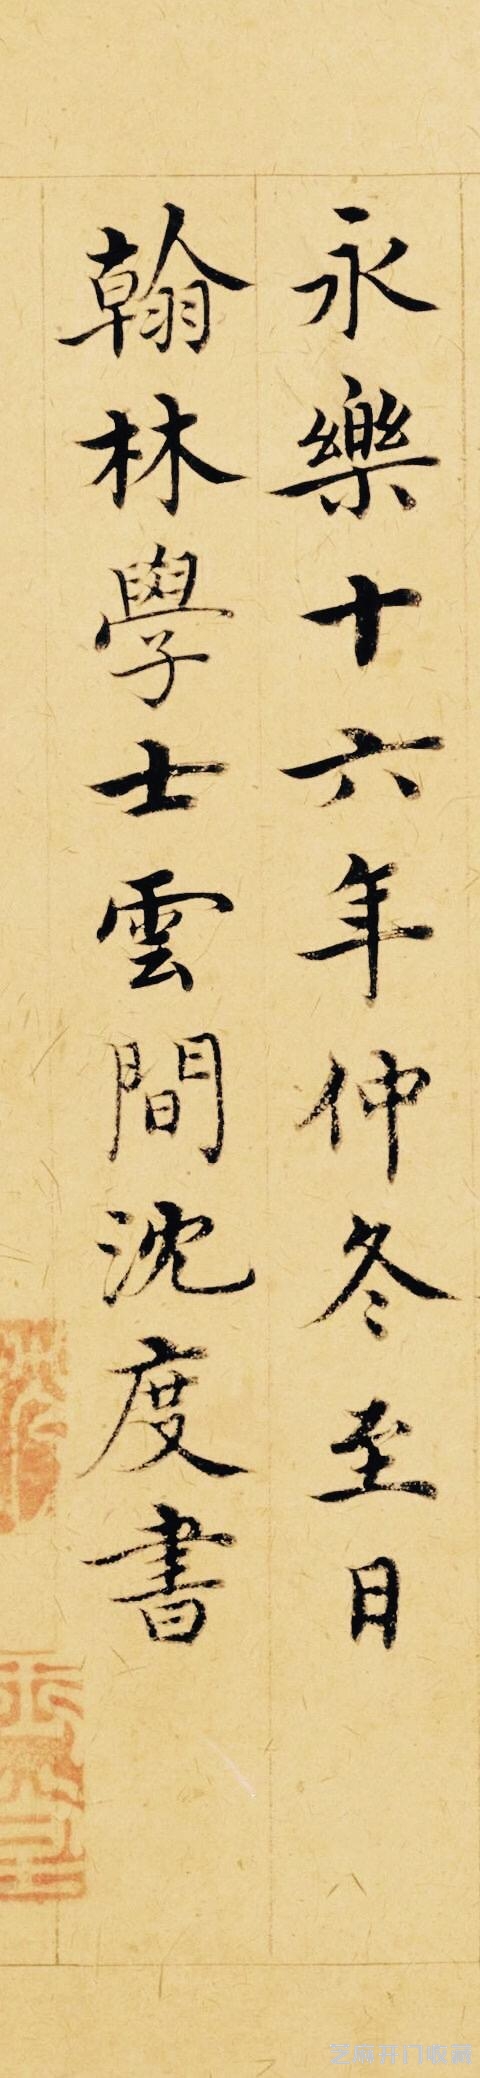 永樂十六年仲冬至日
翰林學士雲間沈度書
芝麻开门收藏